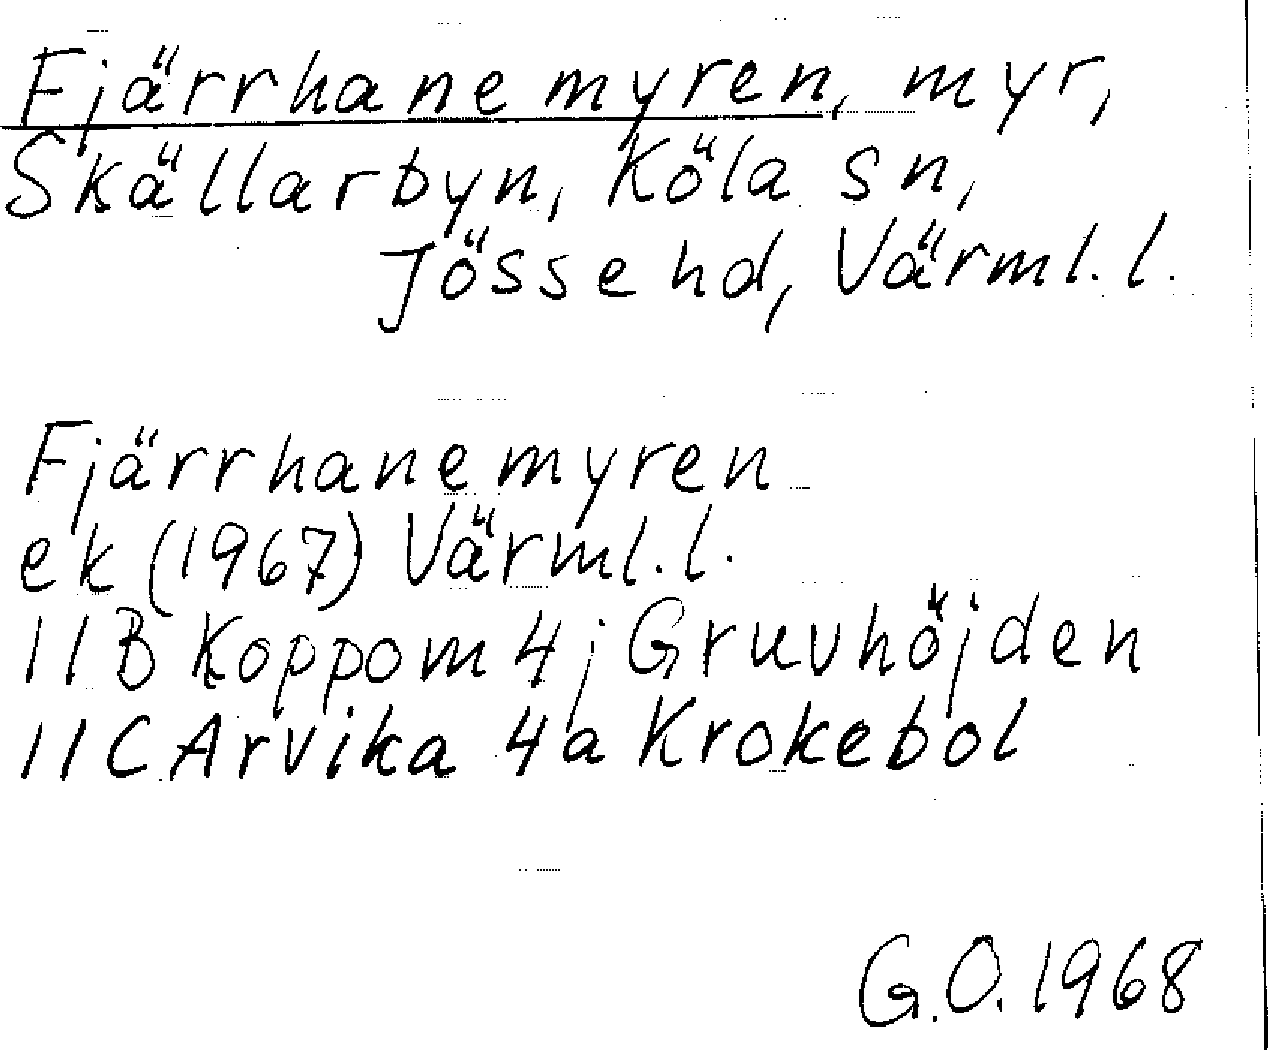 Fjärrhanemyren, myr,
Skällarbyn, Köla sn,
Jösse hd, Värml. l.
Fjärrhanemyren
ek (1967) Värml. l.
11B Koppom 4j Gruvhöjden
11C Arvika 4a Krokebol
G.O. 1968